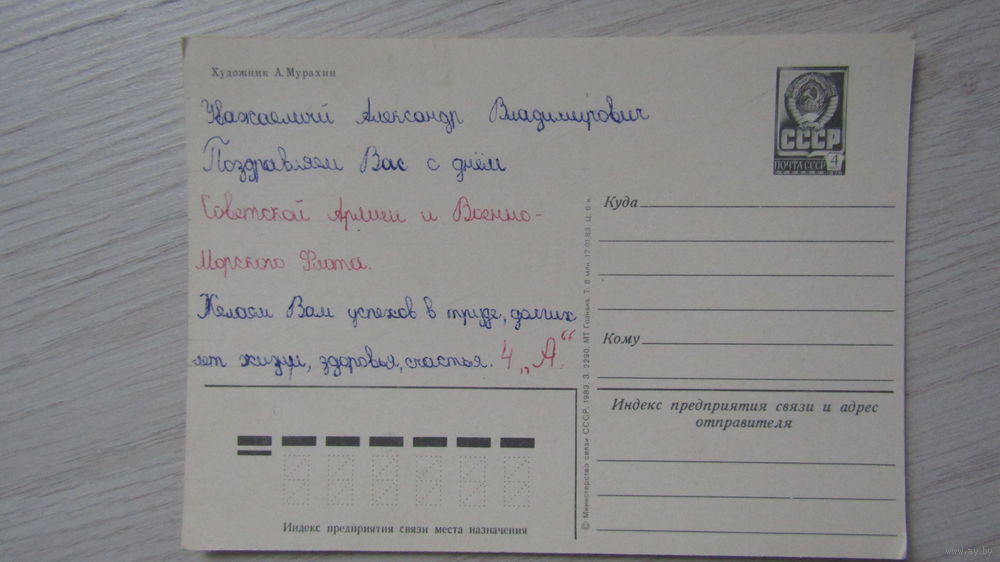 Художник А. Мурахин
Уважаемый Александр Владимирович
Поздравляем Вас с днём
Советской Армии и Военно-
Морского Флота.
Желаем Вам успехов в труде, долгих
лет жизни, здоровья, счастья. 4 „А“
СССР
ПОЧТА СССР 4
Куда
Кому
Индекс предприятия связи и адрес
отправителя
Индекс предприятия связи места назначения
© Министерство связи СССР, 1983. З. 2290. МТ Гознака. Т. 8 млн. 17.01.83. Ц. 6 к.
www.ay.by